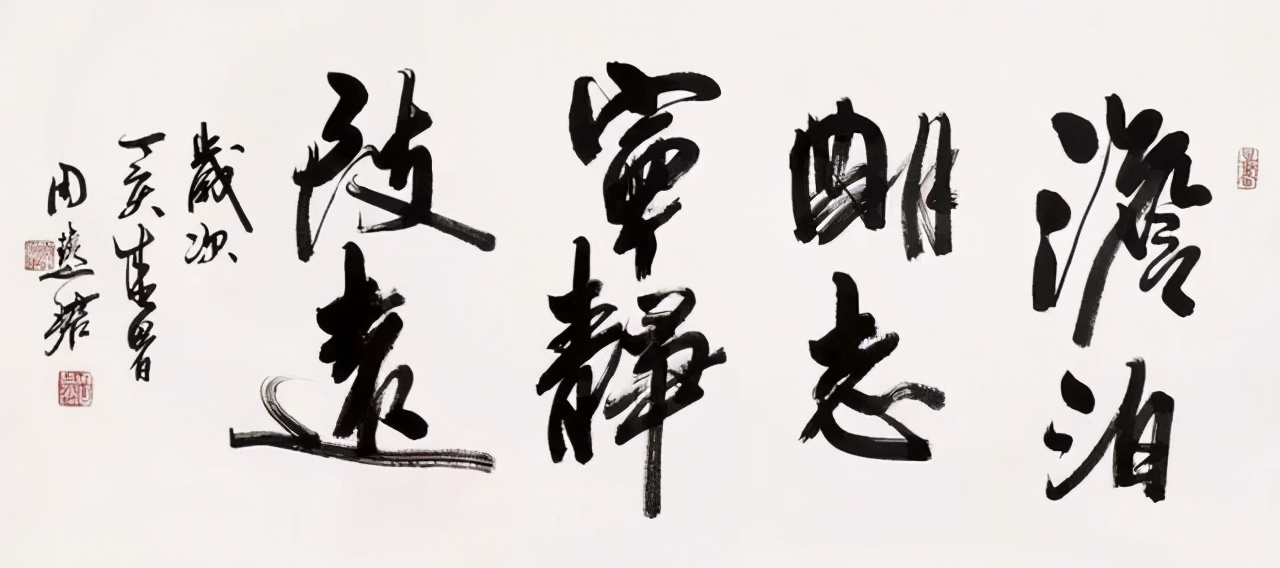 澹泊
明志
寧靜
致遠
歲次
丁亥暑
周慧珺